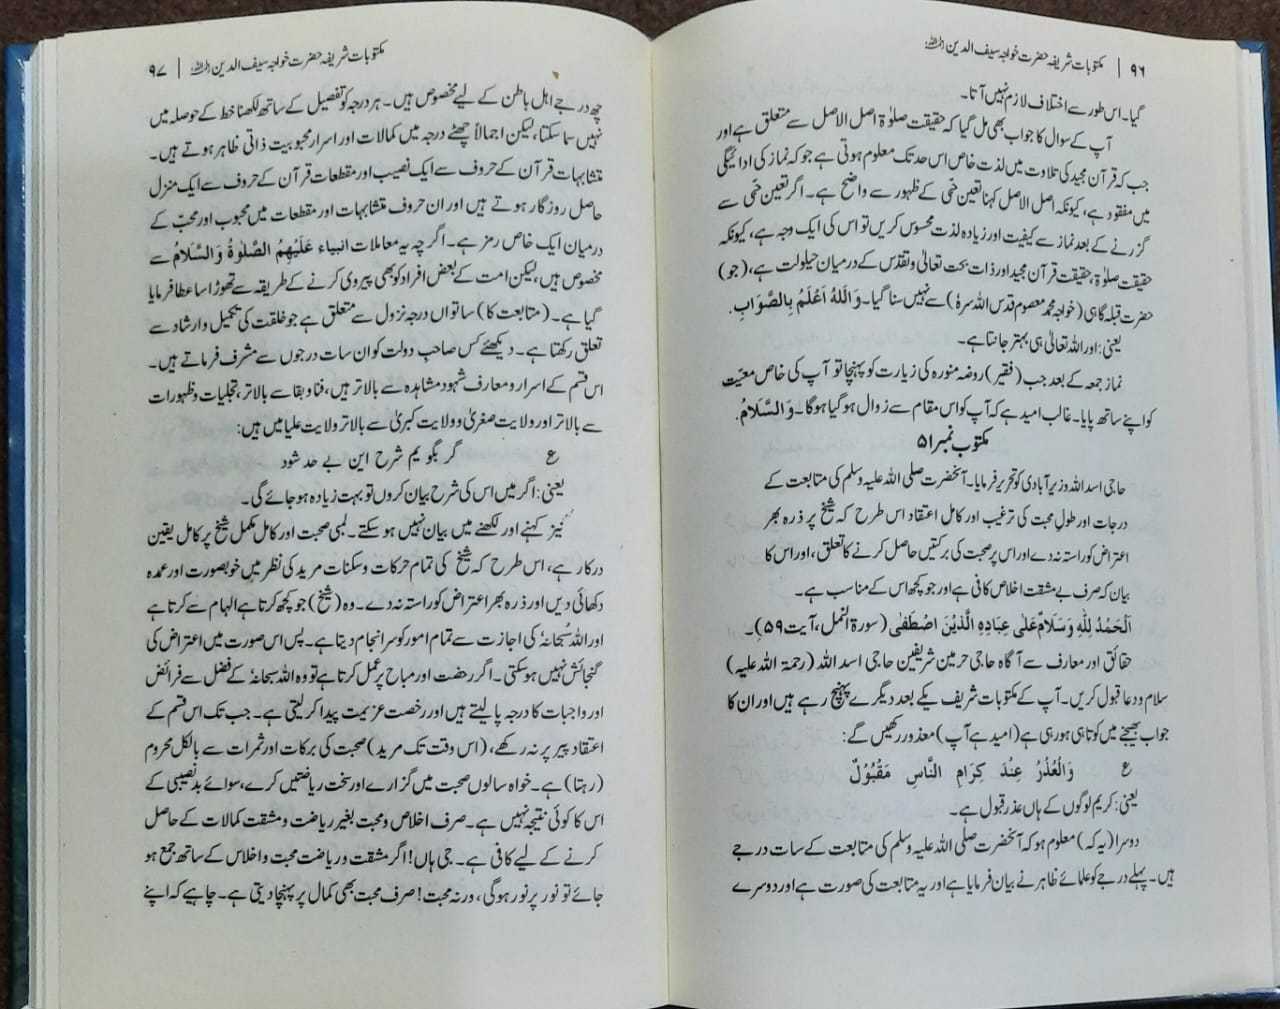 ۹۶ | مکتوبات شریفہ حضرت خواجہ سیف الدین رحمہ اللہ
گیا۔ اس طور سے اختلاف لازم نہیں آتا۔
آپ کے سوال کا جواب بھی مل گیا کہ حقیقت صلوٰۃ اصل الاصل سے متعلق ہے اور
جب کہ قرآن مجید کی تلاوت میں لذت خاص اس حد تک معلوم ہوتی ہے جو کہ نماز کی ادائیگی
میں مفقود ہے، کیونکہ اصل الاصل کہنا تعین حُبّی کے ظہور سے واضح ہے۔ اگر تعین حُبّی سے
گزرنے کے بعد نماز سے کیفیت اور زیادہ لذت محسوس کریں تو اس کی ایک وجہ ہے، کیونکہ
حقیقت صلوٰۃ، حقیقت قرآن مجید اور ذات بحت تعالیٰ و تقدس کے درمیان حیلولت ہے، (جو)
حضرت قبلہ گاہی (خواجہ محمد معصوم قدس اللہ سرہٗ) سے نہیں سنا گیا۔ وَاللهُ اَعْلَمُ بِالصَّوَابِ.
یعنی: اور اللہ تعالیٰ ہی بہتر جانتا ہے۔
نماز جمعہ کے بعد جب (فقیر) روضہ منورہ کی زیارت کو پہنچا تو آپ کی خاص معیّت
کو اپنے ساتھ پایا۔ غالب امید ہے کہ آپ کو اس مقام سے زوال ہو گیا ہوگا۔ وَالسَّلَامُ.
مکتوب نمبر ۵۱
حاجی اسد اللہ وزیر آبادی کو تحریر فرمایا۔ آنحضرت صلی اللہ علیہ وسلم کی متابعت کے
درجات اور طولِ صحبت کی ترغیب اور کامل اعتقاد اس طرح کہ شیخ پر ذرہ بھر
اعتراض کو راستہ نہ دے اور اس پر صحبت کی برکتیں حاصل کرنے کا تعلق، اور اس کا
بیان کہ صرف بے مشقت اخلاص کافی ہے اور جو کچھ اس کے مناسب ہے۔
اَلْحَمْدُ لِلّٰهِ وَسَلَامٌ عَلٰى عِبَادِهِ الَّذِيْنَ اصْطَفٰى (سورۃ النمل، آیت ۵۹)۔
حقائق اور معارف سے آگاہ حاجی حرمین شریفین حاجی اسد اللہ (رحمۃ اللہ علیہ)
سلام و دعا قبول کریں۔ آپ کے مکتوبات شریف یکے بعد دیگرے پہنچ رہے ہیں اور ان کا
جواب بھیجنے میں کوتاہی ہو رہی ہے (امید ہے آپ) معذور رکھیں گے:
ع وَالْعُذْرُ عِنْدَ كِرَامِ النَّاسِ مَقْبُوْلٌ
یعنی: کریم لوگوں کے ہاں عذر قبول ہے۔
دوسرا (یہ کہ) معلوم ہو کہ آنحضرت صلی اللہ علیہ وسلم کی متابعت کے سات درجے
ہیں۔ پہلے درجے کو علمائے ظاہر نے بیان فرمایا ہے اور یہ متابعت کی صورت ہے اور دوسرے
مکتوبات شریفہ حضرت خواجہ سیف الدین رحمہ اللہ | ۹۷
چھ درجے اہل باطن کے لیے مخصوص ہیں۔ ہر درجہ کو تفصیل کے ساتھ لکھنا خط کے حوصلہ میں
نہیں سما سکتا، لیکن اجمالاً چھٹے درجہ میں کمالات اور اسرار محبوبیت ذاتی ظاہر ہوتے ہیں۔
متشابہات قرآن کے حروف سے ایک نصیب اور مقطعات قرآن کے حروف سے ایک منزل
حاصل روزگار ہوتے ہیں اور ان حروف متشابہات اور مقطعات میں محبوب اور محبّ کے
درمیان ایک خاص رمز ہے۔ اگرچہ یہ معاملات انبیاء عَلَيْهِمُ الصَّلٰوةُ وَالسَّلَامُ سے
مخصوص ہیں، لیکن امت کے بعض افراد کو بھی پیروی کرنے کے طریقہ سے تھوڑا سا عطا فرمایا
گیا ہے۔ (متابعت کا) ساتواں درجہ نزول سے متعلق ہے جو خلقت کی تکمیل و ارشاد سے
تعلق رکھتا ہے۔ دیکھئے کس صاحب دولت کو ان سات درجوں سے مشرف فرماتے ہیں۔
اس قسم کے اسرار و معارف شہود و مشاہدہ سے بالاتر ہیں، فنا و بقا سے بالاتر، تجلیات و ظہورات
سے بالاتر اور ولایت صغریٰ و ولایت کبریٰ سے بالاتر ولایت علیا میں ہیں:
ع گر بگویم شرح این بے حد شود
یعنی: اگر میں اس کی شرح بیان کروں تو بہت زیادہ ہو جائے گی۔
نیز کہنے اور لکھنے میں بیان نہیں ہو سکتے۔ لمبی صحبت اور کامل مکمل شیخ پر کامل یقین
درکار ہے، اس طرح کہ شیخ کی تمام حرکات و سکنات مرید کی نظر میں خوبصورت اور عمدہ
دکھائی دیں اور ذرہ بھر اعتراض کو راستہ نہ دے۔ وہ (شیخ) جو کچھ کرتا ہے الہام سے کرتا ہے
اور اللہ سُبحانہٗ کی اجازت سے تمام امور کو سر انجام دیتا ہے۔ پس اس صورت میں اعتراض کی
گنجائش نہیں ہو سکتی۔ اگر رخصت اور مباح پر عمل کرتا ہے تو وہ اللہ سبحانہٗ کے فضل سے فرائض
اور واجبات کا درجہ پا لیتے ہیں اور رخصت عزیمت پیدا کر لیتی ہے۔ جب تک اس قسم کے
اعتقاد پیر پر نہ رکھے، (اس وقت تک مرید) صحبت کی برکات اور ثمرات سے بالکل محروم
(رہتا) ہے۔ خواہ سالوں صحبت میں گزارے اور سخت ریاضتیں کرے، سوائے بدنصیبی کے
اس کا کوئی نتیجہ نہیں ہے۔ صرف اخلاص و محبت بغیر ریاضت و مشقت کمالات کے حاصل
کرنے کے لیے کافی ہے۔ جی ہاں! اگر مشقت و ریاضت محبت و اخلاص کے ساتھ جمع ہو
جائے تو نور پر نور ہوگی، ورنہ محبت! صرف محبت بھی کمال پر پہنچا دیتی ہے۔ چاہیے کہ اپنے